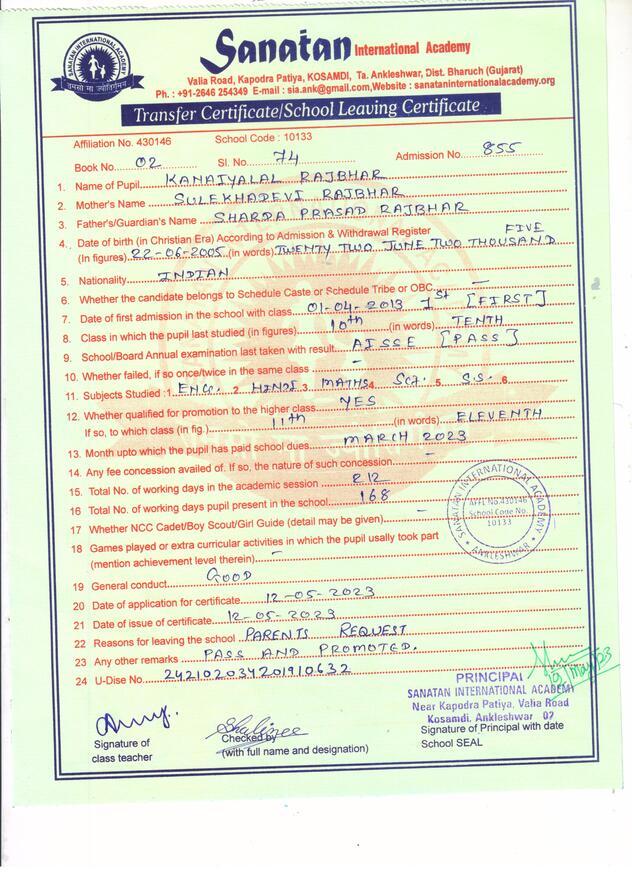 SANATAN INTERNATIONAL ACADEMY
तमसो मा ज्योतिर्गमय
Sanatan International Academy
Valia Road, Kapodra Patiya, KOSAMDI, Ta. Ankleshwar, Dist. Bharuch (Gujarat)
Ph. : +91-2646 254349 E-mail : sia.ank@gmail.com,Website : sanataninternationalacademy.org
Transfer Certificate/School Leaving Certificate
Affiliation No. 430146 School Code : 10133
Book No. 02 Sl. No. 74 Admission No. 855
1. Name of Pupil KANAIYALAL RAJBHAR
2. Mother's Name SULEKHADEVI RAJBHAR
3. Father's/Guardian's Name SHARDA PRASAD RAJBHAR
4. Date of birth (in Christian Era) According to Admission & Withdrawal Register FIVE
(In figures) 22-06-2005 (in words) TWENTY TWO JUNE TWO THOUSAND
5. Nationality INDIAN
6. Whether the candidate belongs to Schedule Caste or Schedule Tribe or OBC. —
7. Date of first admission in the school with class 01-04-2013 1st [FIRST]
8. Class in which the pupil last studied (in figures) 10th (in words) TENTH
9. School/Board Annual examination last taken with result AISSE [PASS]
10. Whether failed, if so once/twice in the same class –
11. Subjects Studied :1 ENG. 2 HINDI 3 MATHS 4 SCI. 5 S.S. 6
12. Whether qualified for promotion to the higher class YES
If so, to which class (in fig.) 11th (in words) ELEVENTH
13. Month upto which the pupil has paid school dues MARCH 2023
14. Any fee concession availed of. If so, the nature of such concession –
15. Total No. of working days in the academic session 212
16 Total No. of working days pupil present in the school 168
17 Whether NCC Cadet/Boy Scout/Girl Guide (detail may be given) –
18 Games played or extra curricular activities in which the pupil usally took part
(mention achievement level therein) –
19 General conduct GOOD
20 Date of application for certificate 12-05-2023
21 Date of issue of certificate 12-05-2023
22 Reasons for leaving the school PARENTS REQUEST
23 Any other remarks PASS AND PROMOTED.
24 U-Dise No. 242102034201910632
SANATAN INTERNATIONAL ACADEMY
AFFI. No.430146
School Code No.
10133
ANKLESHWAR
PRINCIPAL
SANATAN INTERNATIONAL ACADEMY
Near Kapodra Patiya, Valia Road
Kosamdi, Ankleshwar 02
Signature of Checked by Signature of Principal with date
class teacher (with full name and designation) School SEAL